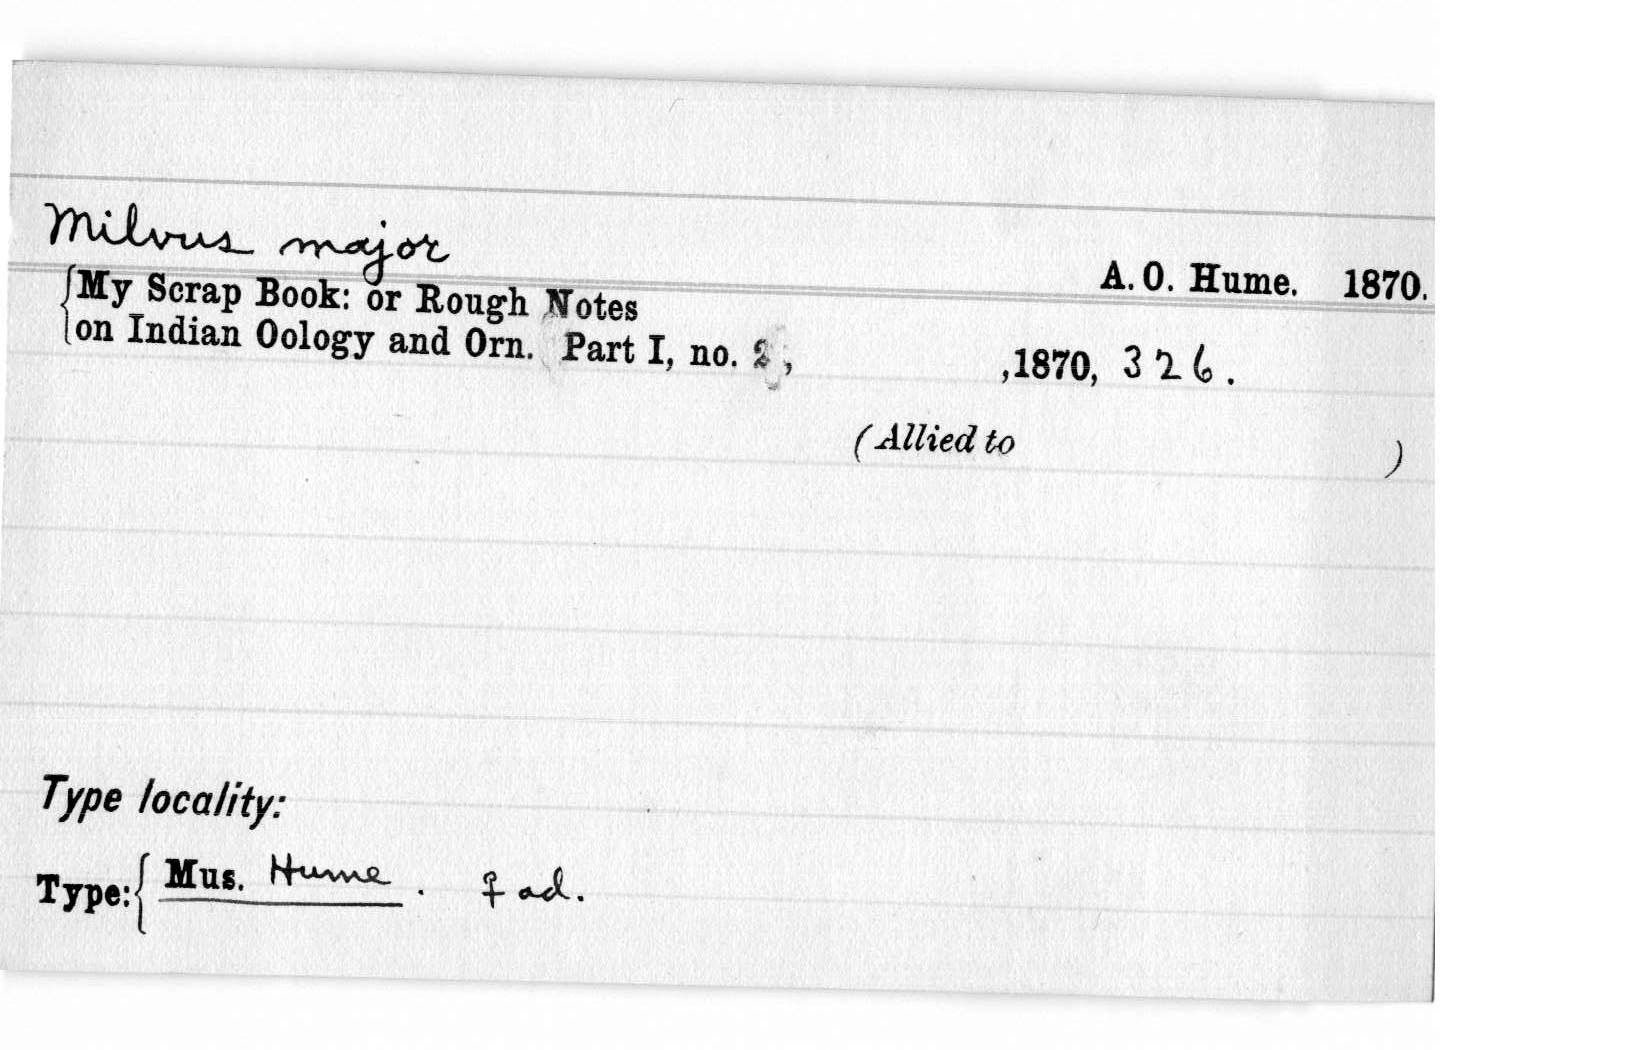 Milvus major
A. O. Hume. 1870.
{My Scrap Book: or Rough Notes
on Indian Oology and Orn. Part I, no. 2, ,1870, 326.
(Allied to )
Type locality:
Type:{ Mus. Hume . ♀ ad.